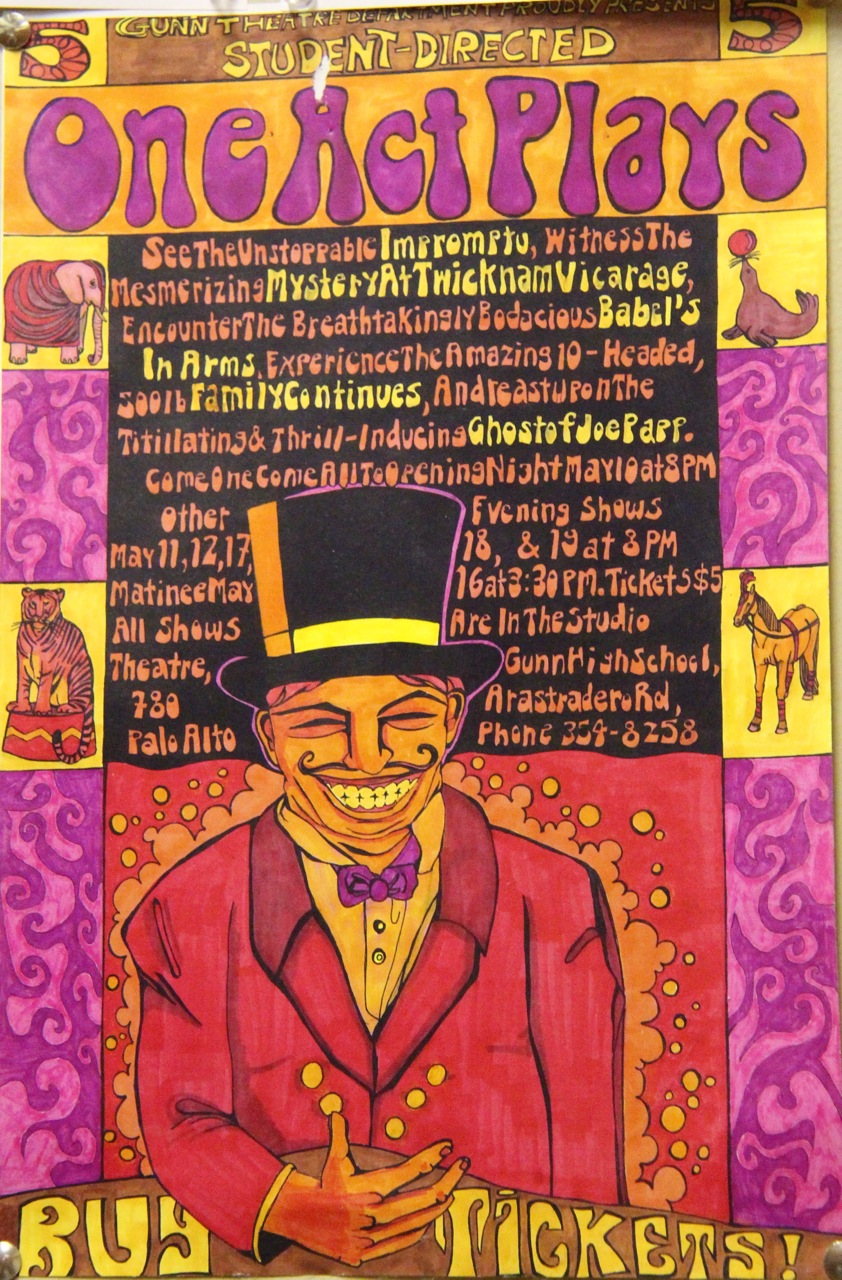 5 GUNN THEATRE DEPARTMENT PROUDLY PRESENTS 5
STUDENT-DIRECTED
One Act Plays
See The Unstoppable Impromptu, Witness The
Mesmerizing Mystery At Twicknam Vicarage,
Encounter The Breathtakingly Bodacious Babel's
In Arms, Experience The Amazing 10-Headed,
500lb Family Continues, And reast upon The
Titillating & Thrill-Inducing Ghost of Joe Papp.
Come One Come All To Opening Night May 10 at 8 PM
Other Evening Shows
May 11, 12, 17, 18, & 19 at 8 PM
Matinee May 16 at 3:30 PM. Tickets $5
All Shows Are In The Studio
Theatre, Gunn High School,
780 Arastradero Rd,
Palo Alto Phone 354-8258
BUY TICKETS!